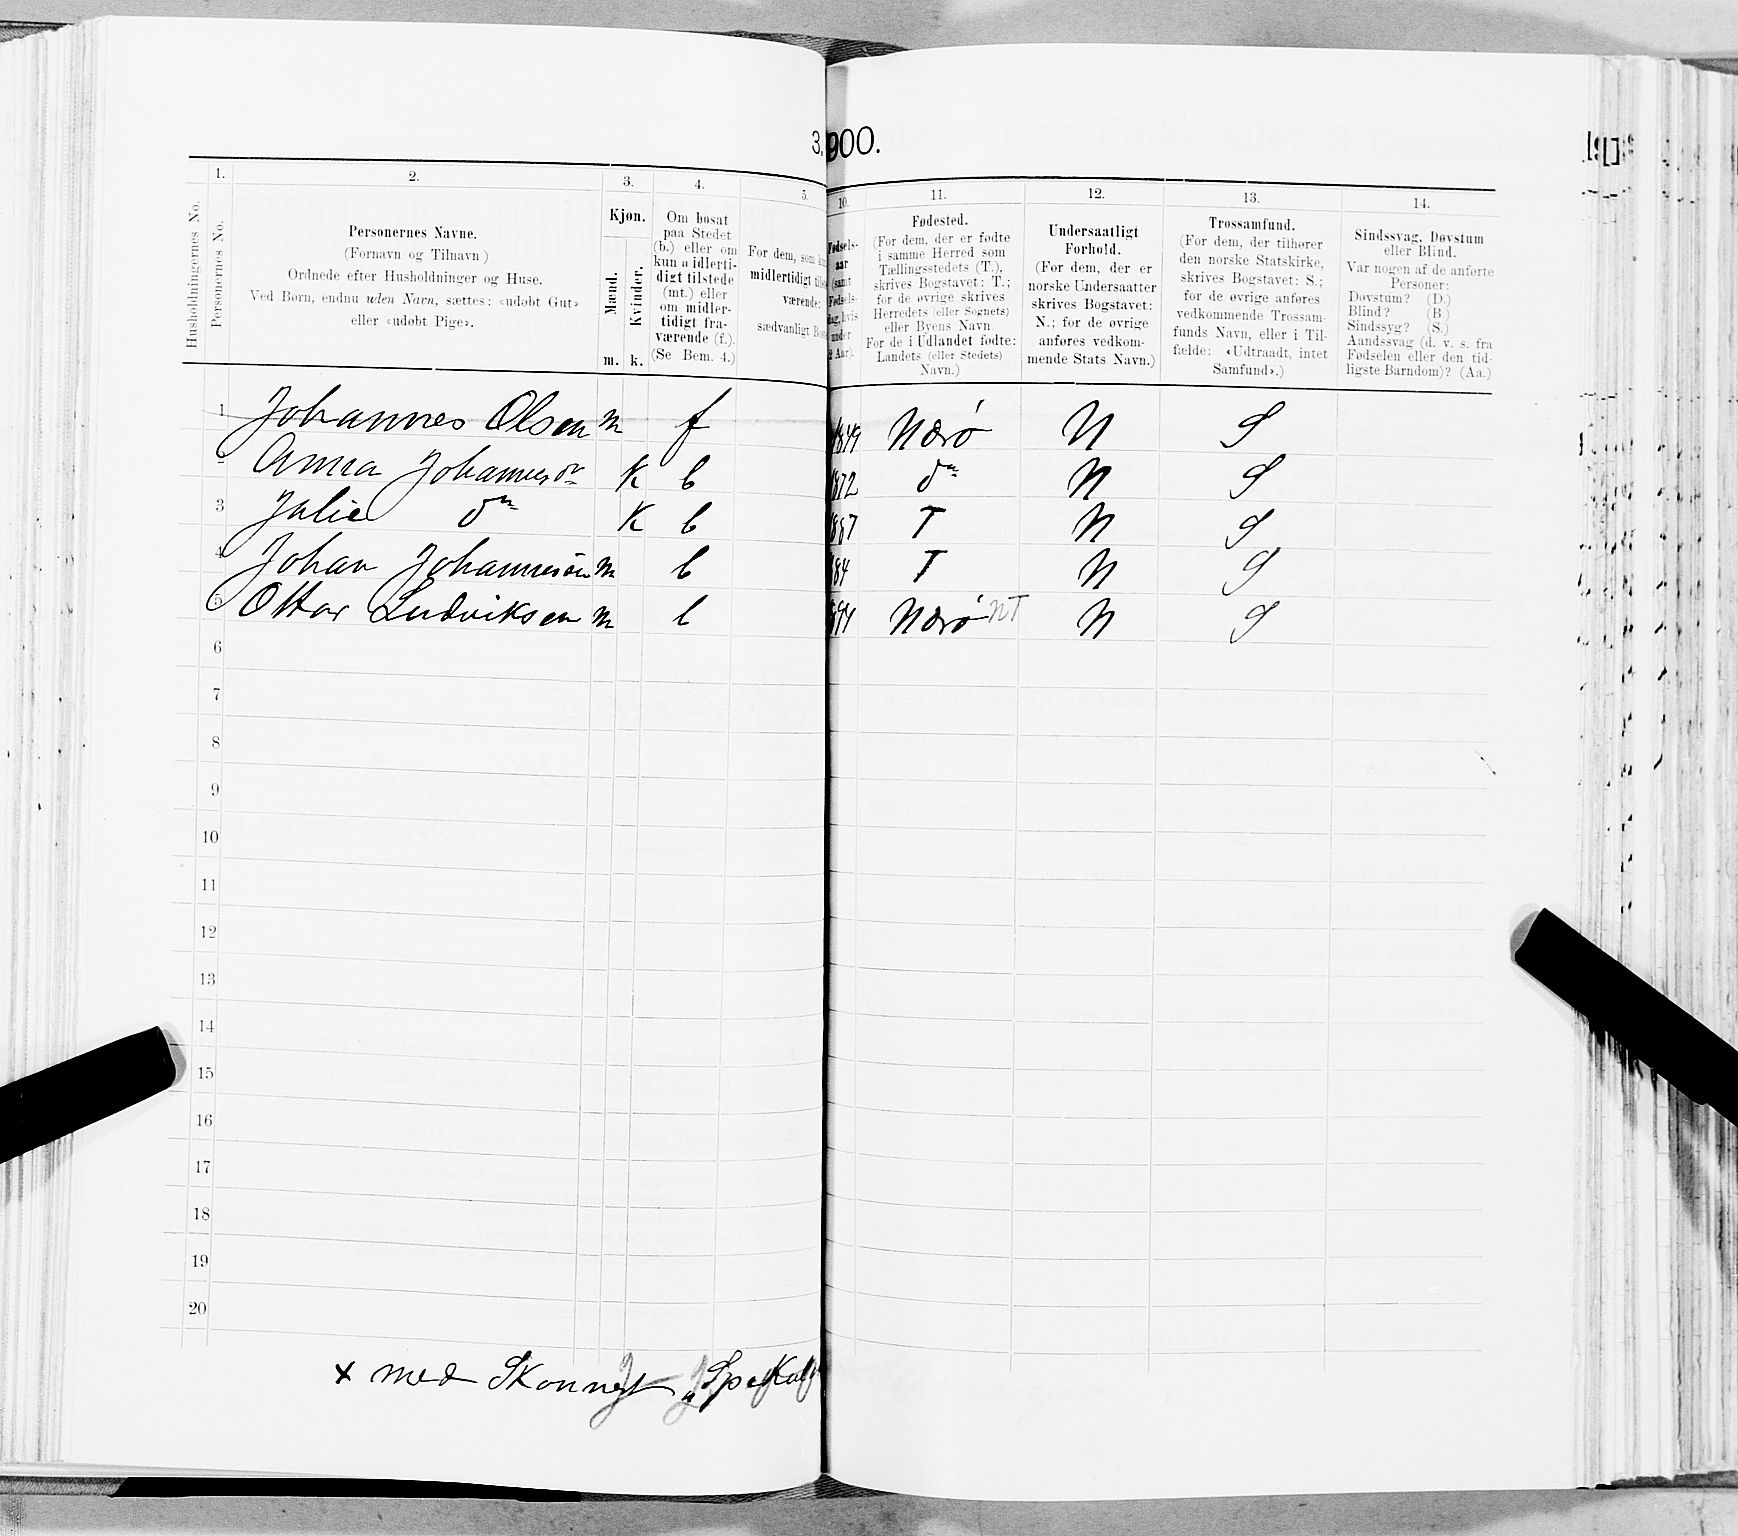 3.
900.
1.
2.
3.
4.
5.
Husholdningernes No.
Personernes No.
Personernes Navne.
(Fornavn og Tilnavn)
Ordnede efter Husholdninger og Huse.
Ved Børn, endnu uden Navn, sættes: «udøbt Gut»
eller «udøbt Pige».
Kjøn.
Mænd.
Kvinder.
m. k.
Om bosat
paa Stedet
(b.) eller om
kun midlerti-
digt tilstede
(mt.) eller
om midler-
tidigt fra-
værende (f.).
(Se Bem. 4.)
For dem, som
midlertidigt
værende:
sædvanligt
10.
11.
12.
13.
14.
Fødsels-
aar
(samt
Fødsels-
dag, hvis
under
2 Aar).
Fødested.
(For dem, der er fødte
i samme Herred som
Tællingsstedets (T.),
skrives Bogstavet: T.;
for de øvrige skrives
Herredets (eller Sognets)
eller Byens Navn
For de i Udlandet fødte:
Landets (eller Stedets)
Navn.)
Undersaatligt
Forhold.
(For dem, der er
norske Undersaatter
skrives Bogstavet:
N.; for de øvrige
anføres vedkom-
mende Stats Navn.)
Trossamfund.
(For dem, der tilhører
den norske Statskirke,
skrives Bogstavet: S.;
for de øvrige anføres
vedkommende Trossam-
funds Navn, eller i Til-
fælde: «Udtraadt, intet
Samfund».)
Sindssvag, Døvstum
eller Blind.
Var nogen af de anførte
Personer:
Døvstum? (D.)
Blind? (B.)
Sindssyg? (S.)
Aandssvag (d. v. s. fra
Fødselen eller den tid-
ligste Barndom)? (Aa.)
1 Johannes Olsen m f 1849 Nærö N S
2 Anna Johannesdr K b 872 do N S
3 Julie do K b 887 T N S
4 Johan Johannesen m b 84 T N S
5 Ottar Ludviksen m b 94 Nærö NT N S
6
7
8
9
10
11
12
13
14
15
16
17
18
19
20
x med Skonnert